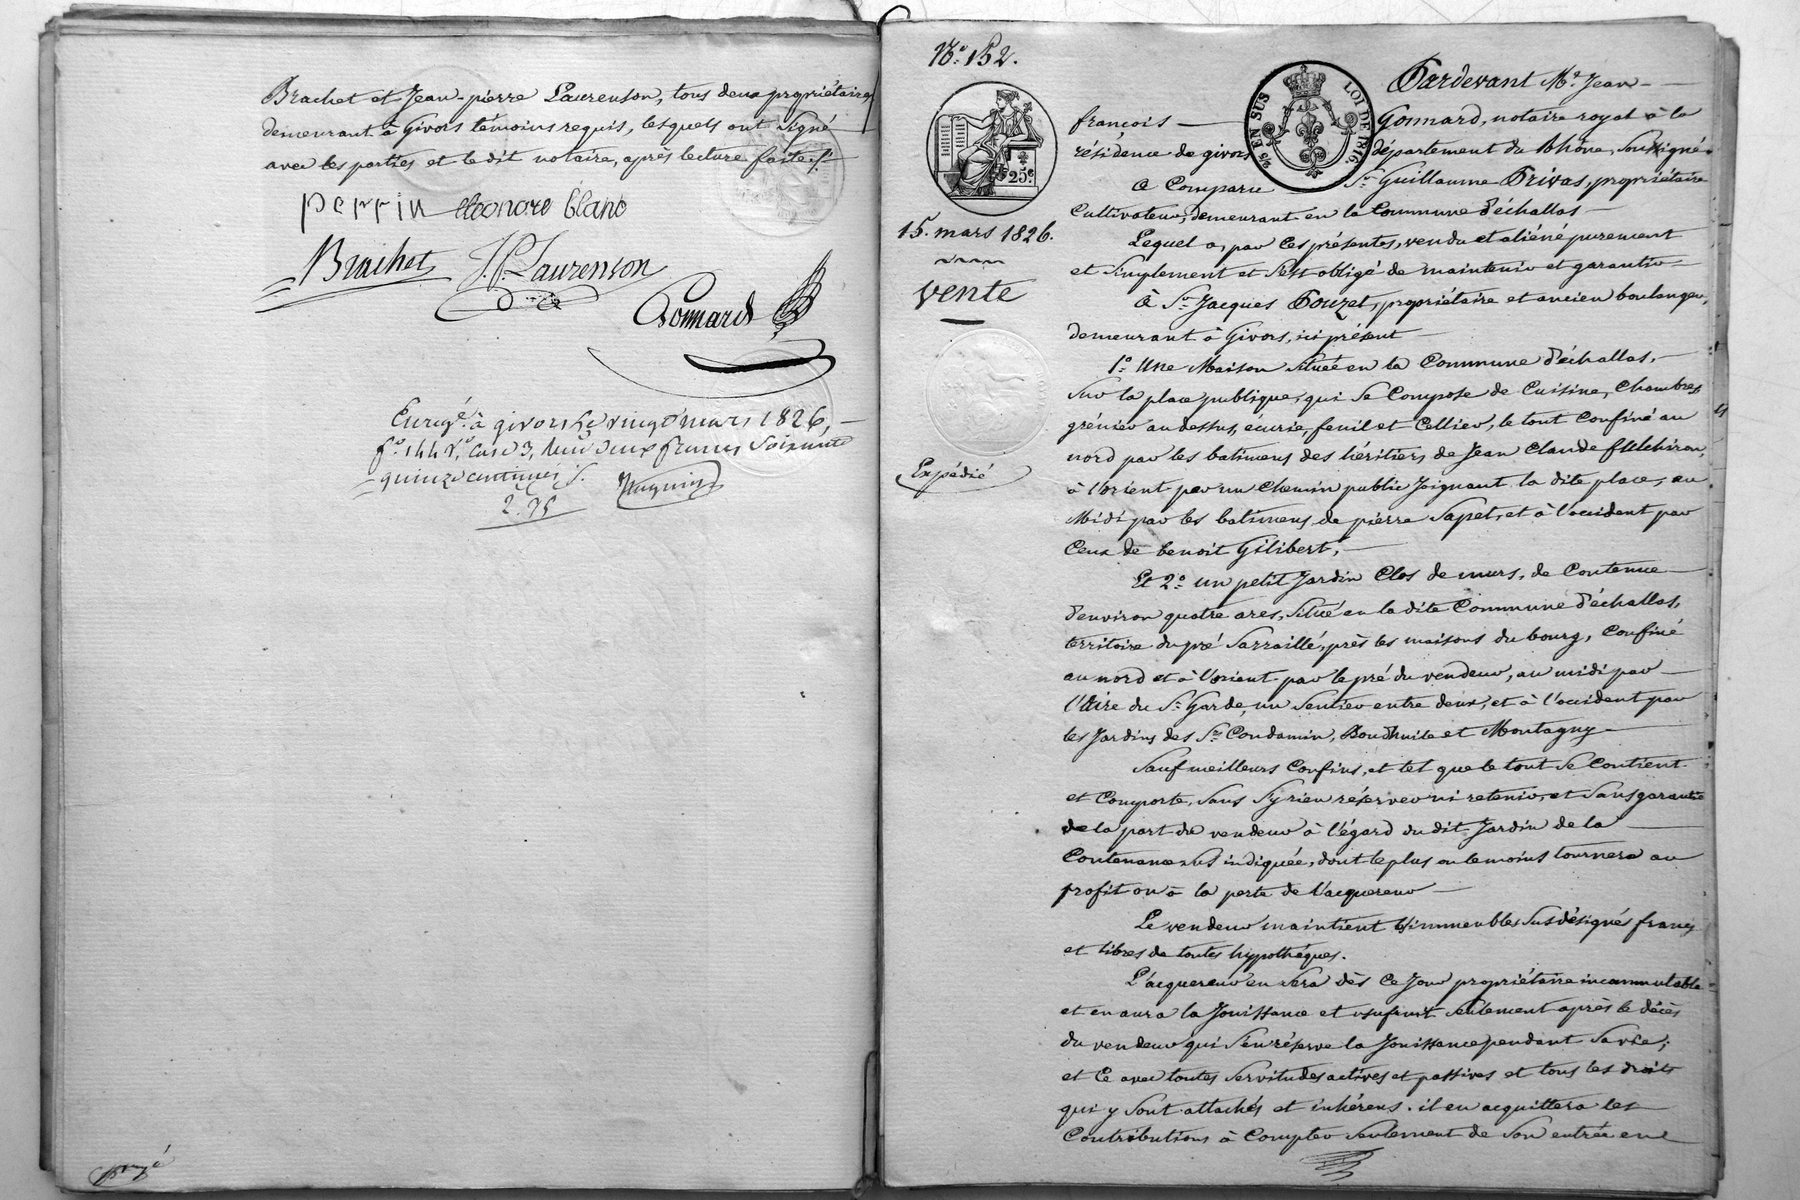 Brachet et Jean-pierre Laurenson, tous deux propriétaires
demeurant à Givors témoins requis, lesquels ont signé
avec les parties et le dit notaire, après lecture faite ./.
perrin eleonore blanc
Brachet J. P. Laurenson
Gonnard
Enregé. à givors le vingt mars 1826,
fo. 144 Vo. Case 3, deux francs soixante
quinze centimes
2.75
No. 152.
15. mars 1826.
vente
Expédié
25c
5/s EN SUS
LOI DE 1816.
Pardevant Me. Jean
françois Gonnard, notaire royal à la
résidence de givors département du Rhône, soussigné
a Comparu Sr. Guillaume Privas, propriétaire
Cultivateur, demeurant en la Commune d'échallas
Lequel a, par ces présentes, vendu et aliéné purement
et simplement et s'est obligé de maintenir et garantir
à Sr. Jacques Pouzet, propriétaire et ancien boulanger,
demeurant à Givors, ici présent
1o. Une Maison située en la Commune d'échallas,
sur la place publique, qui se Compose de Cuisine, Chambres
grenier au dessus, écurie, fenil et Cellier, le tout Confiné au
nord par les batimens des héritiers de Jean Claude flelchiron,
à l'orient par un Chemin public joignant la dite place, au
Midi par les batimens de pierre Sapet, et à l'occident par
Ceux de benoit Gilibert,
Et 2o. un petit Jardin Clos de murs, de Contenue
d'environ quatre ares, situé en la dite Commune d'échallas,
territoire du pré Sarraillé, près les maisons du bourg, Confiné
au nord et à l'orient par le pré du vendeur, au midi par
l'Aire du Sr. Garde, un sentier entre deux, et à l'occident par
les Jardins des Srs. Condamin, Boudhuile et Montagny
Sauf meilleurs Confins, et tel que le tout se Contient
et Comporte, sans s'y rien réserver ni retenir, et sans garantie
de la part du vendeur à l'égard du dit Jardin de la
Contenance sus indiquée, dont le plus ou le moins tournera au
profit ou à la perte de l'acquereur
Le vendeur maintient les immeubles sus désignés francs
et libres de toutes hypothéques.
L'acquereur en sera dès ce Jour propriétaire incommutable
et en aura la Jouissance et usufruit seulement après le décès
du vendeur qui s'en réserve la Jouissance pendant sa vie;
et Ce avec toutes servitudes actives et passives et tous les droits
qui y sont attachés et inhérens. il en acquittera les
Contributions à Compter seulement de son entrée en